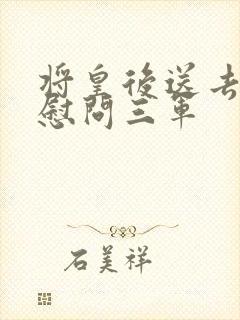 将皇後送去
慰問三軍
石美祥